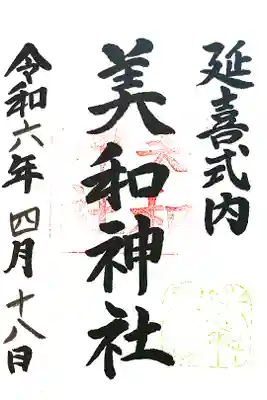 延喜式内
美和神社
令和六年 四月 十八日